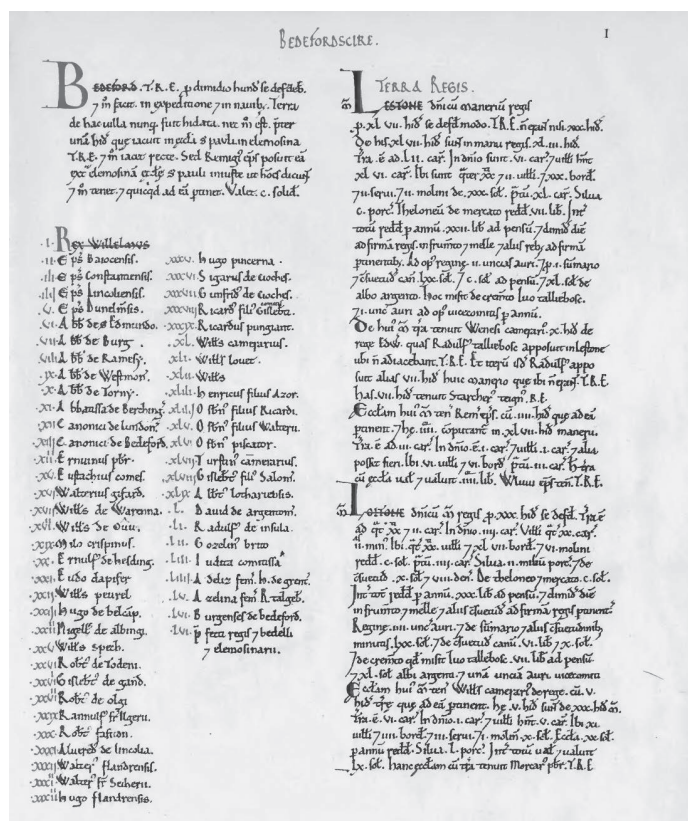 BEDEFORDSCIRE.
I
BEDEFORD. T.R.E. p dimidio hund se defdeb.
7 m facit. in expeditione 7 in nauib;. Terra
de hac uilla nunq, fuit hidata. nec m est. pter
una hid que iacuit in eccla s pauli in elemosina
T.R.E. 7 m iacet recte. Sed Remigi eps posuit ea
ext elemosina eccle s pauli iniuste ut hoes dicunt
7 m tenet. 7 quicqd ad ea ptinet. Valet. c. solid.
.I. Rex Willelmus
.II. Eps Baiocensis.
.III. Eps Constantiensis.
Eps Lincoliensis.
.V. Eps Dunelmsis.
.VI. Abb de S Edmundo.
.VII. Abb de Burg.
.VIII. Abb de Ramesy.
.IX. Abb de Westmon.
.X. Abb de Torny.
.XI. Abbatissa de Berching.
.XII. Canonici de London.
.XIII. Canonici de Bedeford.
Ernuinus pbr.
.XV. Eustachius comes.
.XVI. Walterius gifard.
.XVII. Witts de Warenna.
Witts de Ouu.
.XIX. Milo crispinus.
.XX. Ernulf de hesding.
.XXI. Eudo dapifer
.XXII. Witts peurel
.XXIII. Hugo de belcap.
Nigell de albingi.
.XXV. Witts spech.
.XXVI. Robt de Todeni.
Gislebt de gand.
Robt de olgi
.XXIX. Rannulf fr Ilgeru.
.XXX. Robt fafiton.
.XXXI. Alured de lincolia.
.XXXII. Walter flandrensis.
Walter fr Seiheru.
Hugo flandrensis.
.XXXV. Hugo pincerna.
.XXXVI. Sigarus de Cioches.
.XXXVII. Gunfrid de Cioches.
.XXXVIII. Ricard fili Gislebti
.XXXIX. Ricardus pungiant.
.XL. Witts camerarius.
.XLI. Witts louet.
.XLII. Witts
.XLIII. Henricus filius Azor.
Osbn filius Ricardi.
.XLV. Osbn filius Walteru.
.XLVI. Osbn piscator.
.XLVII. Turstin camerarius.
Gislebt fili Salom.
.XLIX. Albt lothariensis.
.L. Dauid de argentom.
.LI. Radulf de insula.
.LII. Gozelin brito
.LIII. Iudita comitissa
.LIIII. Adeliz fem. H. de grent.
.LV. Azelina fem R. talgeb.
.LVI. Burgenses de bedeford.
.LVII. pfecti regis 7 bedelli
7 elemosinarii.
TERRA REGIS.
m LESTONE dnicu maneriu regis
p. xl. vii. hid se defd modo. T.R.E. n erant nisi. xxx. hid.
De his. xl. vii. hid sunt in manu regis. xl. iii. hid.
Tra. e ad. L.II. car. In dnio sunt. vi. car. 7 uitti hnt
xl. vi. car. Ibi sunt quat xx 7 ii. uitti. 7 xxx. bord.
7 ii. serui. 7 ii. molini de. xxx. sol. ptu. xl. car. Silua
c. porc. Theloneu de mercato redd. vii. lib. Int
totu redd p annu. xxii. lib ad pensu. 7 dimid die
ad firma regis in frumto 7 melle 7 aliis reb; ad firma
ptinentib;. Ad op regine. ii. uncias auri. 7 p. i. sumario
7 csuetud can. lxx. sol. 7 c. sol ad pensu. 7 xl. sol de
albo argento. Hoc misit de cremto Iuo tallebosc.
7 i. unc auri ad op uicecomitis p annu.
De hui m tra tenuit Wenesi camerari. x. hid de
rege Edw. quas Radulf tallebosc apposuit in lestone
ubi n adiacebant. T.R.E. Et iteru isd Radulf appo
suit alias vii. hid huic manerio que ibi n erant. T.R.E.
Has. vii. hid tenuit Starcher teign. R.E.
Ecclam hui m ten Remi eps. cu. iiii. hid que ad ea
ptinent. 7 he. iiii. coputant in. xl. vii. hid maneru.
Tra. e ad. iii. car. In dnio. e. i. car. 7 uitti. i. car. 7 alia
posset fieri. Ibi. vi. uitti 7 vi. bord. ptu. iii. car. H tra
cu eccla ual 7 ualuit. iiii. lib. Wluui eps ten. T.R.E.
m LOITONE dnicu m regis. p. xxx. hid se defd. Tra e
ad qt xx 7 ii. car. In dnio. iiii. car. Uitti qt xx. car.
ii. min. Ibi. qt xx. uitti 7 xl. vii. bord. 7 vi. molini
redd. c. sol. ptu. iiii. car. Silua. ii. miliu porc. 7 de
csuetud. x. sol 7 viii. den. De theloneo 7 mercato. c. sol.
Int tot redd p annu. xxx. lib. ad pensu. 7 dimid die
in frumto 7 melle 7 aliis csuetud ad firma regis ptinent.
Regine. iiii. unc auri. 7 de sumario 7 aliis csuetudinib;
minutis. lxx. sol. 7 de csuetud canu. vi. lib 7 x. sol.
7 de cremto qd misit Iuo tallebosc. vii. lib ad pensu
7 xl. sol albi argenti. 7 una uncia auri uicecomiti
Ecclam hui m ten Witts camerari de rege. cu. v.
hid tre que ad ea ptinent. He. v. hid sunt de xxx. hid m.
Tra. e. vi. car. In dnio. i. car. 7 uitti hnt. v. car. Ibi xi.
uitti 7 iiii. bord. 7 iii. serui. 7 i. molin. x. sol. Eccla. xx. sol.
p annu redd. Silua. L. porc. Int totu ual 7 ualuit
lx. sol. Hanc ecclam cu tra tenuit Morcar pbr. T.R.E